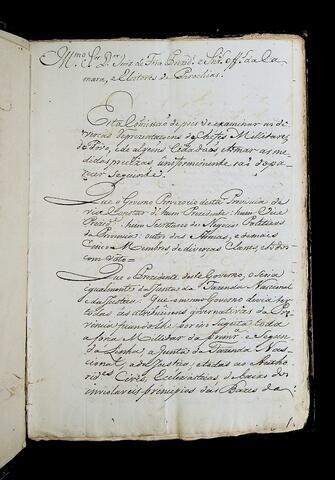 Mmo. Snr. Dor. Juiz de Fóra Prezid. e Snrs. Offs. da Ca
mara, e Eleitores de Parochias.
Esta Comissaõ depois de examinar as di
versas representaçoens de Chefes Militares,
do Povo, e de alguns Cidadaõs, tomar as me
didas precizas uniformemente saõ de pa
recer seguinte.
Que o Governo Provizorio desta Provincia de
via constar d'hum Prezidente: hum Vice
Prezide.: hum Secretario dos Negocios Politicos
da Provincia: outro das Armas, e mais
Cinco Membros de diversas Classes, e todos
com voto=
Que o Prezidente deste Governo, o seria
igualmente da Junta da Fazenda Nacional
e da Justiça. Que o mesmo Governo devia ter
todas as atribuiçoens governativas da Pro
vincia ficando lhe por iso sugeita toda
a força Militar da primra. e Segun
da Linha, a Junta da Fazenda Na
cional, a da Justiça, e todas as Autho
rides. Civis, Ecclesiasticas, debaixo dos
inviolaveis principios das Bazes da